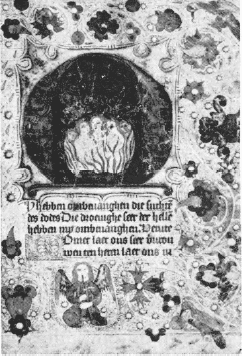 hebben ombevanghen die suchtē
des dodes Die droeuighe seer der hellē
hebben my ombevanghen Venite
Comet laet ons seer
den heren laet ons